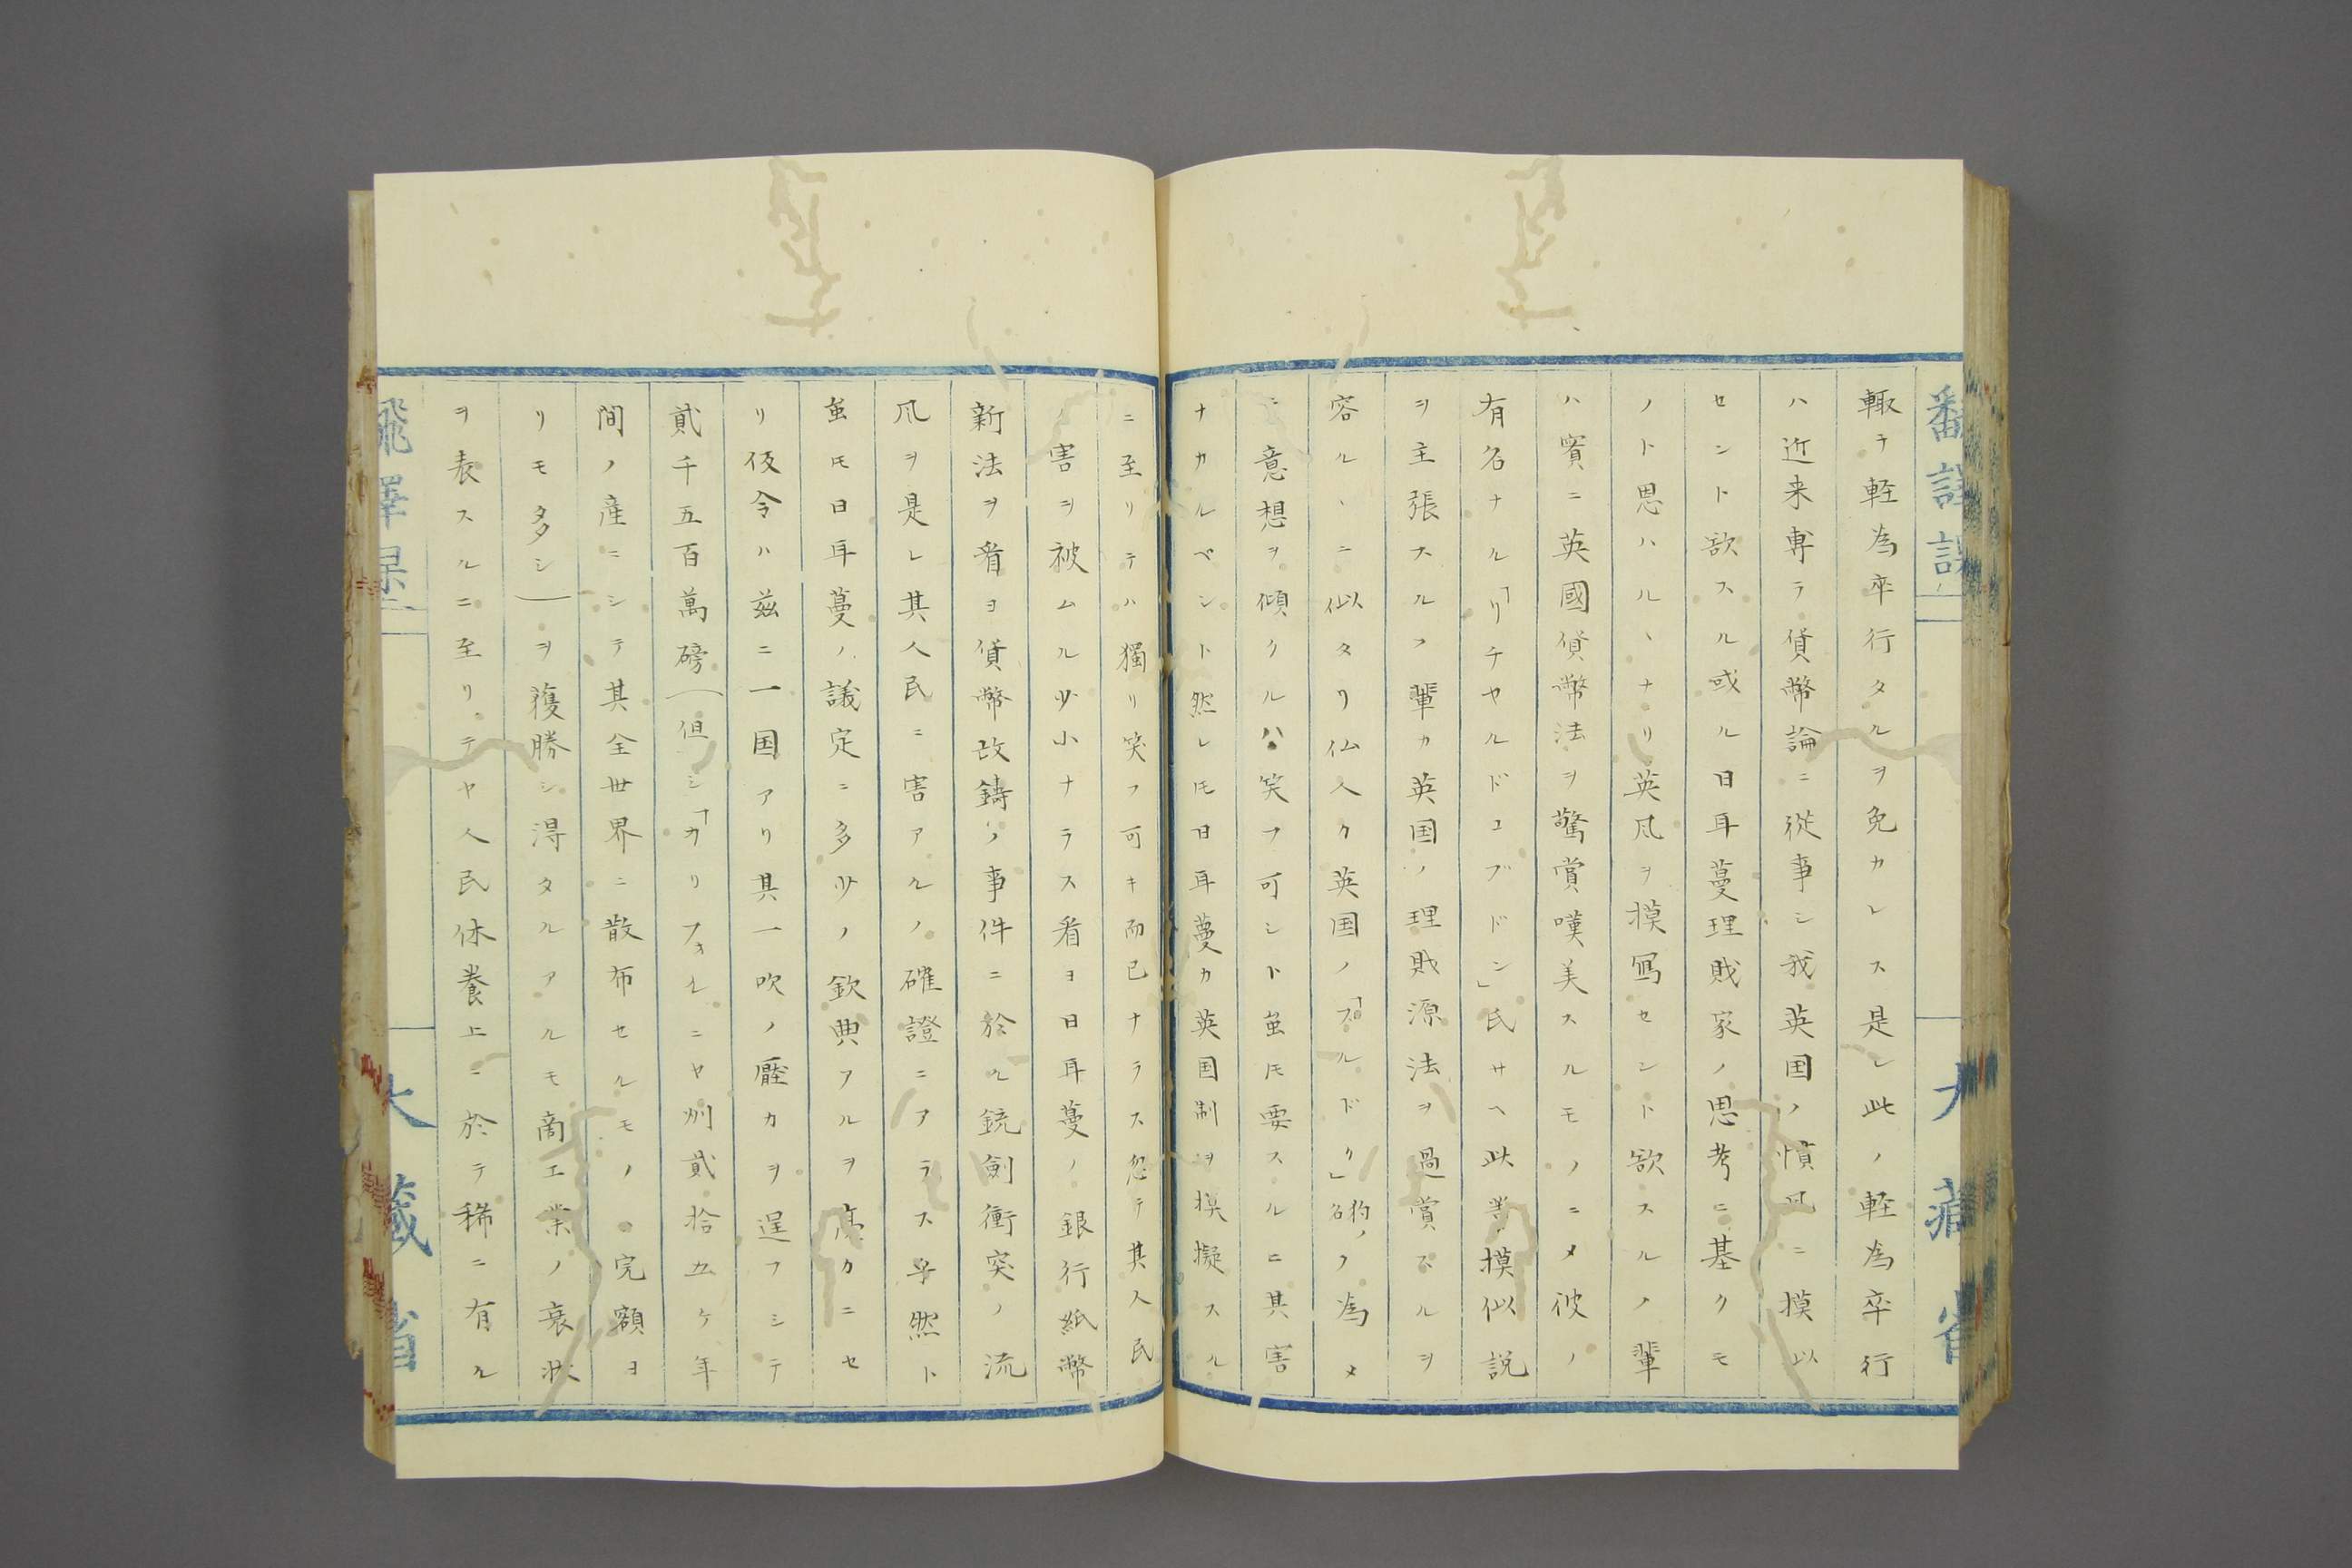 翻譯課
大藏省
輙チ軽為卒行タルヲ免カレス是レ此ノ軽為卒行
ハ近来専ラ貨幣論ニ従事シ我英国ノ慣凡ニ摸以
セント欲スル或ル日耳蔓理財家ノ思考ニ基クモ
ノト思ハルヽナリ英凡ヲ摸冩セント欲スルノ輩
ハ實ニ英國貨幣法ヲ驚賞嘆美スルモノニメ彼ノ
有名ナル「リチヤルドコブドン」氏サヘ此等摸似説
ヲ主張スルフ輩カ英国ノ理財源法ヲ過賞スルヲ
容ルヽニ似タリ仏人ク英国ノ「ブルドク」狗ノ名ノ為メ
ニ意想ヲ傾クルハ笑フ可シト虽𪜈要スルニ其害
ナカルベシト然レ𪜈日耳蔓カ英国制ヲ摸擬スル
ニ至リテハ獨リ笑フ可キ而已ナラス忽テ其人民
ノ害ヲ被ムル少小ナラス看ヨ日耳蔓ノ銀行紙幣
新法ヲ看ヨ貨幣改鋳ノ事件ニ於ル銃剣衝突ノ流
凡ヲ是レ其人民ニ害アルノ確證ニアラス乎然ト
虽𪜈日耳蔓ノ議定ニ多少ノ欽典アルヲ
リ仮令ハ茲ニ一国アリ其一吹ノ壓力ヲ逞フシテ
貳千五百萬磅（但シ「カリフォルニヤ州貳拾五ケ年
間ノ産ニシテ其全世界ニ散布セルモノヽ完額ヨ
リモ多シ）ヲ獲勝シ得タルアルモ商工業ノ衰状
ヲ表スルニ至リテヤ人民休養上ニ於テ稀ニ有ル
飜譯課
大藏省